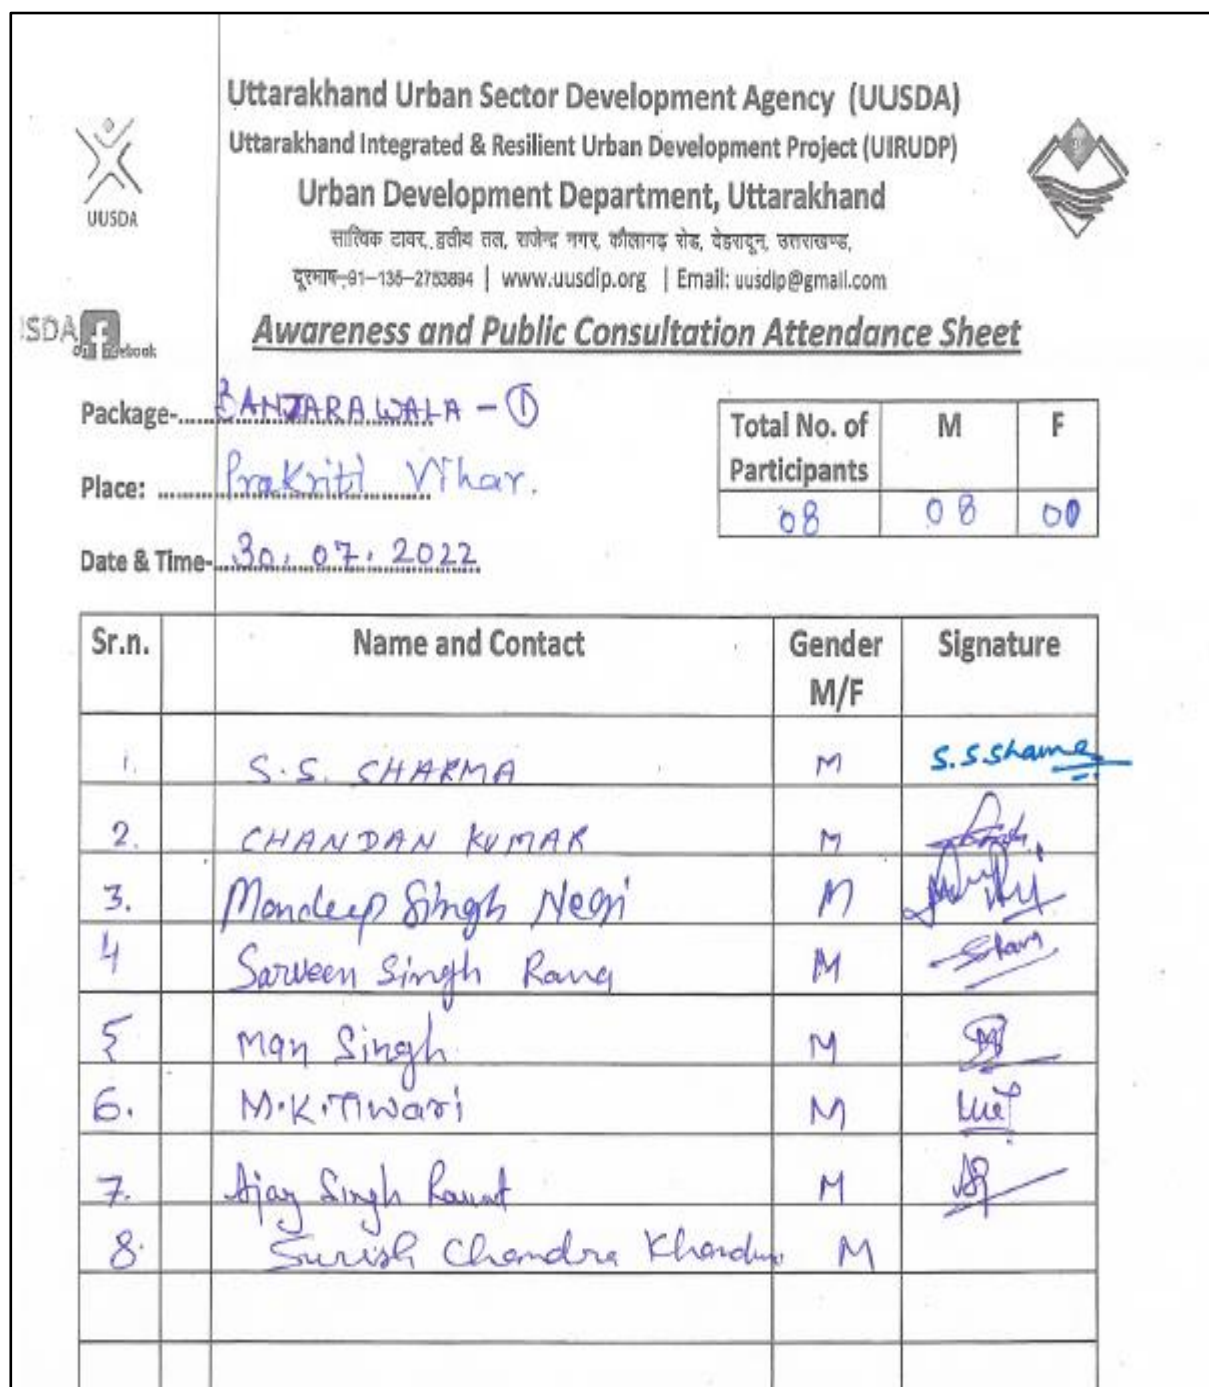 Uttarakhand Urban Sector Development Agency (UUSDA)
Uttarakhand Integrated & Resilient Urban Development Project (UIRUDP)
Urban Development Department, Uttarakhand
UUSDA
सात्विक टावर, द्वतीय तल, राजेन्द्र नगर, कौलागढ़ रोड, देहरादून, उत्तराखण्ड,
दूरभाष-91-135-2753894 | www.uusdip.org | Email: uusdip@gmail.com
Awareness and Public Consultation Attendance Sheet
Package- BANJARAWALA - ①
Place: Prakriti Vihar.
Date & Time- 30.07.2022
Total No. of Participants M F
08 08 00
Sr.n. Name and Contact Gender M/F Signature
1. S.S. SHARMA M S.S.Sharma
2. CHANDAN KUMAR M
3. Mandeep Singh Negi M
4 Sarveen Singh Rana M
5 Man Singh M
6. M.K.Tiwari M
7. Ajay Singh Rawat M
8. Surish Chandra M